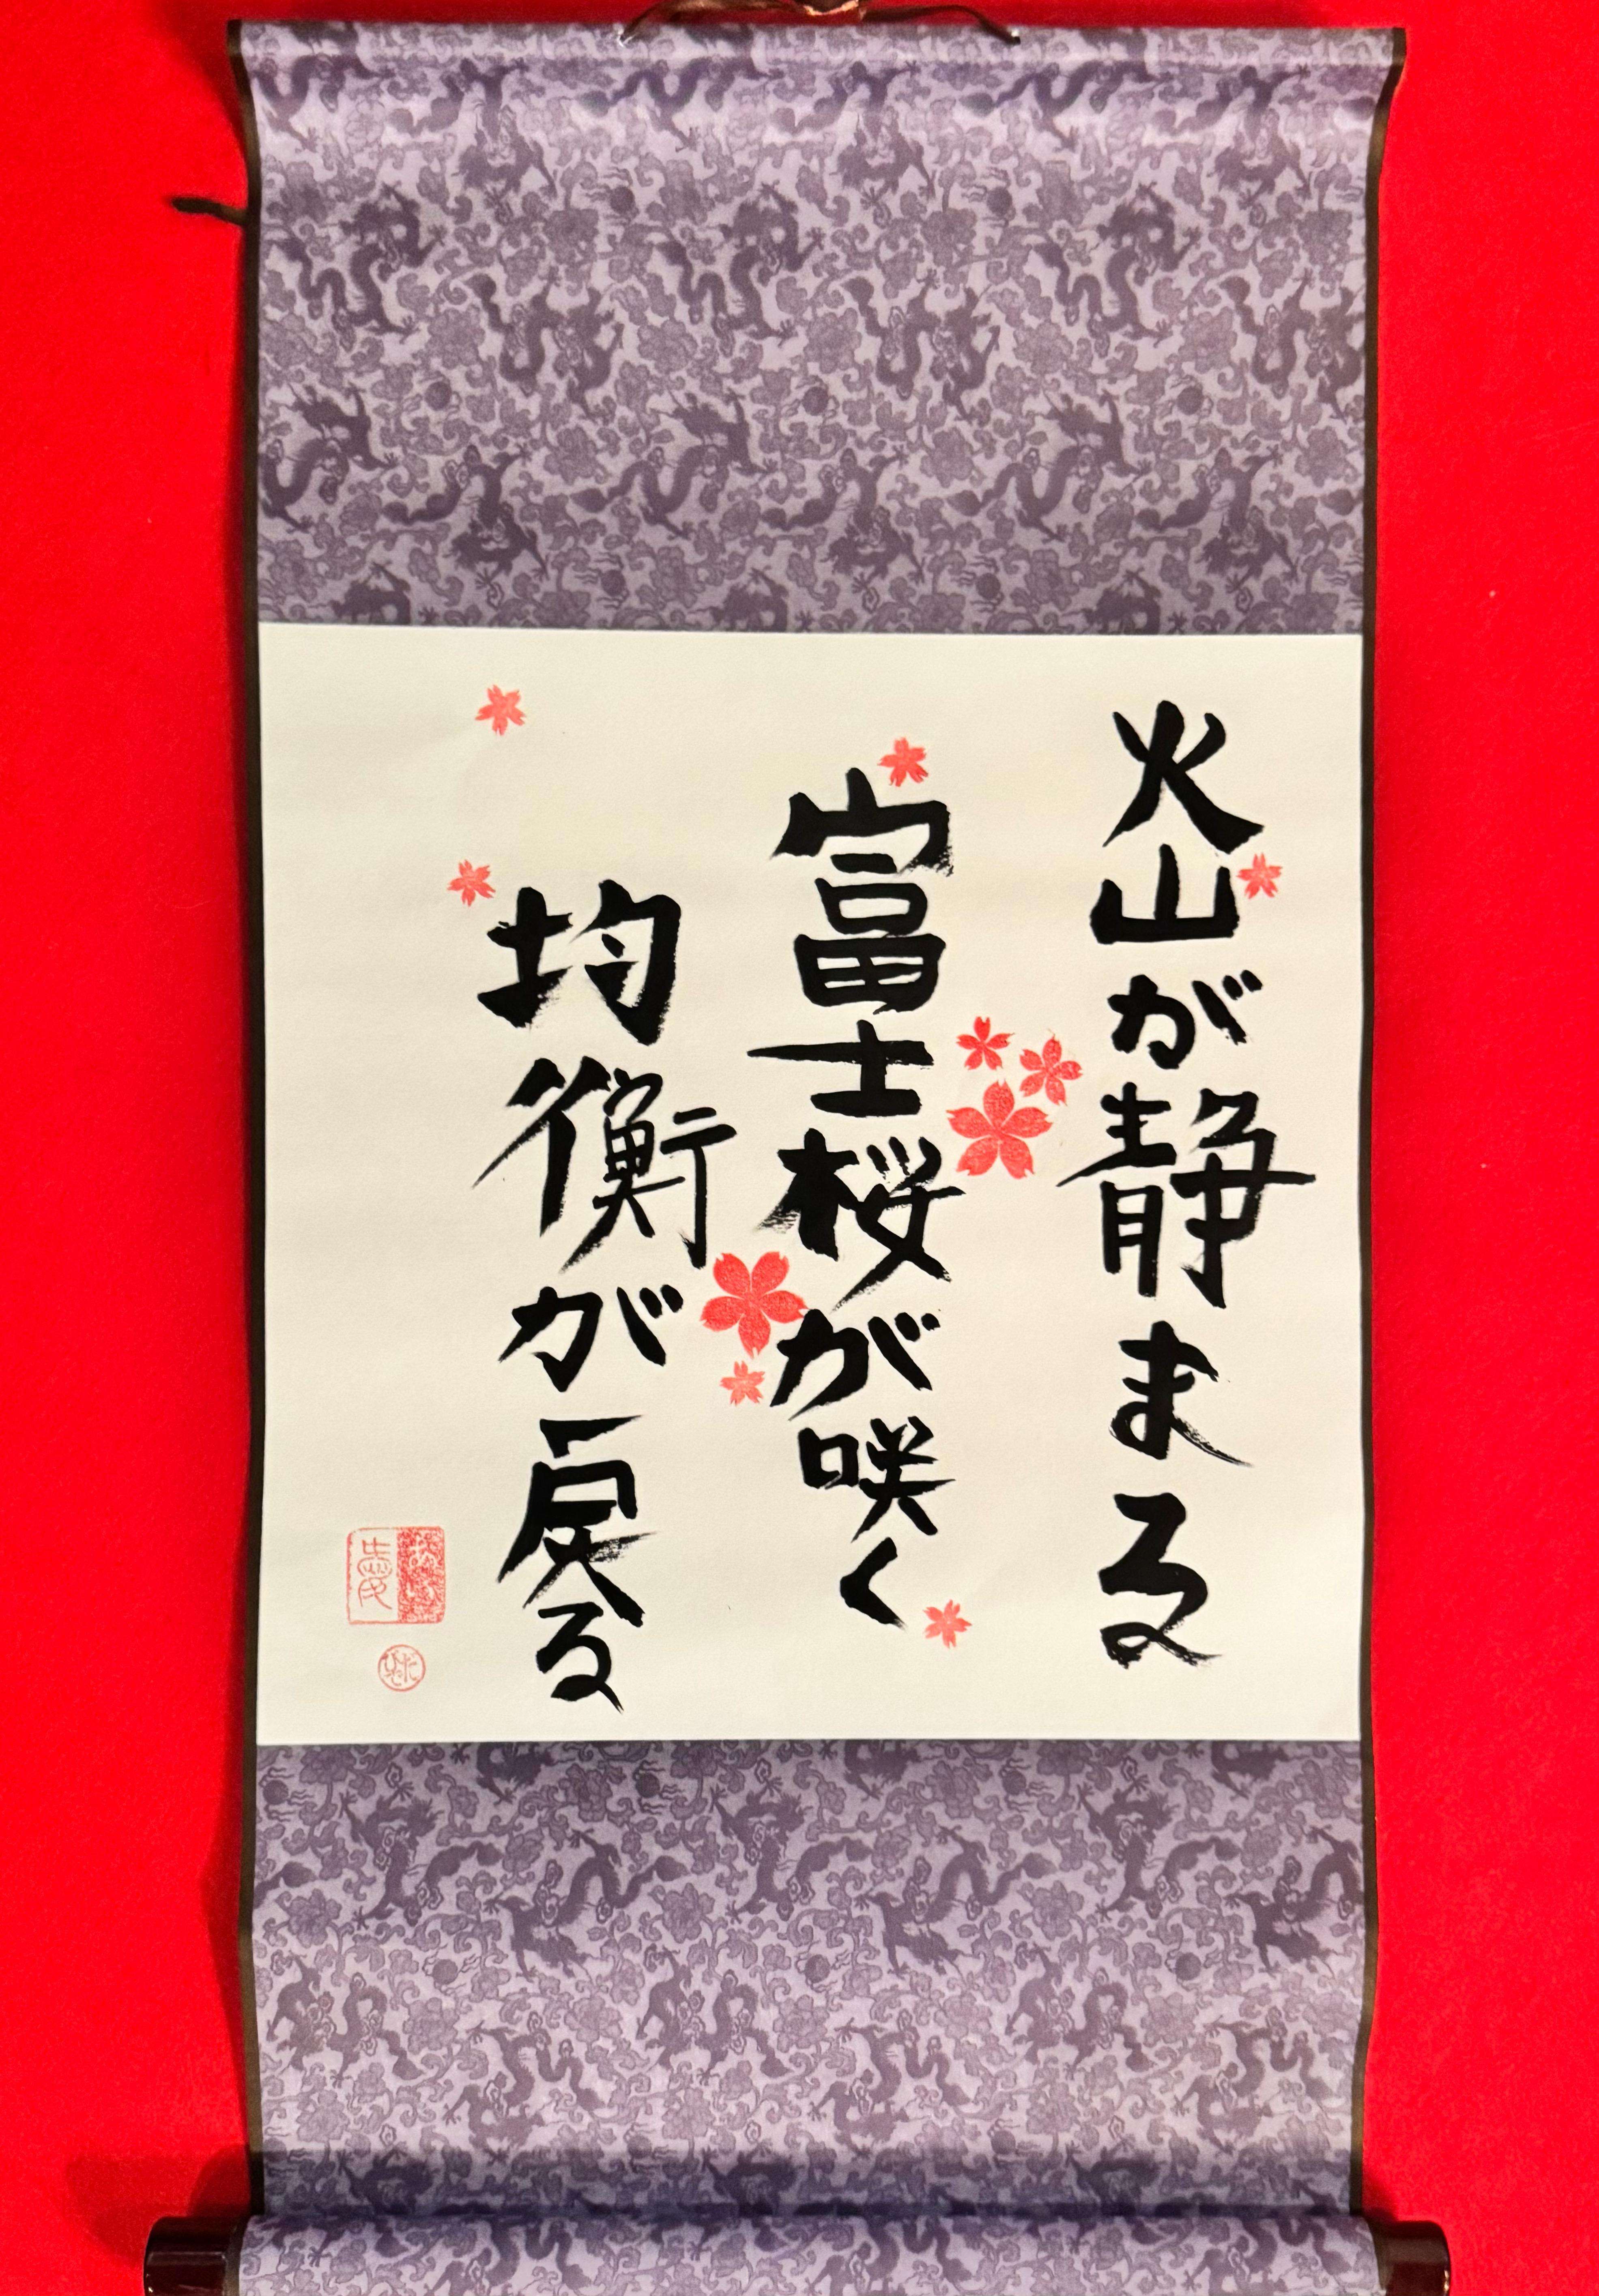 火山が静まる
富士桜が咲く
均衡が戻る